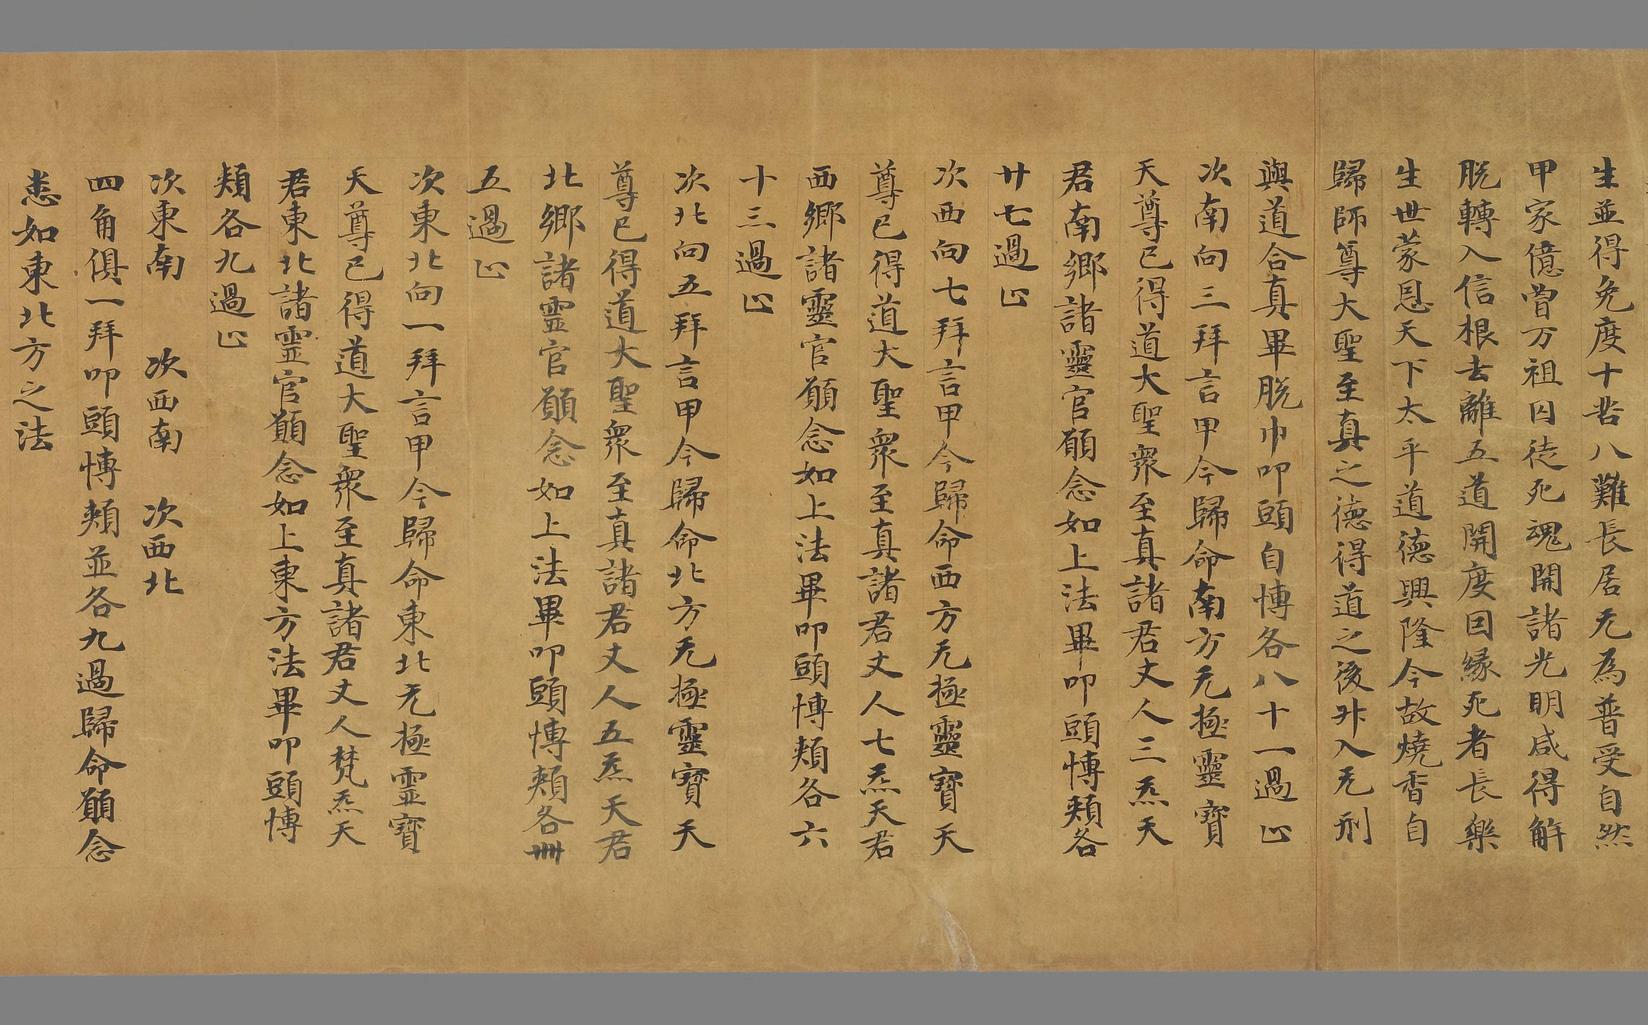 生並得免度十苦八難長居无為普受自然
甲家億曽万祖囚徒死魂開諸光明咸得解
脱轉入信根去離五道開度因緣死者長樂
生世蒙恩天下太平道德興隆今故燒香自
歸師尊大聖至真之德得道之後升入无刑
與道合真畢脱巾叩頭自慱各八十一過止
次南向三拜言甲今歸命南方无極靈寳
天尊已得道大聖衆至真諸君丈人三炁天
君南鄉諸靈官願念如上法畢叩頭慱頰各
廿七過止
次西向七拜言甲今歸命西方无極靈寳天
尊已得道大聖衆至真諸君丈人七炁天君
西鄉諸靈官願念如上法畢叩頭慱頰各六
十三過止
次北向五拜言甲今歸命北方无極靈寳天
尊已得道大聖衆至真諸君丈人五炁天君
北鄉諸霊官願念如上法畢叩頭慱頰各卌
五過止
次東北向一拜言甲今歸命東北无極霊寳
天尊已得道大聖衆至真諸君丈人梵炁天
君東北諸霊官願念如上東方法畢叩頭慱
頰各九過止
次東南 次西南 次西北
四角俱一拜叩頭慱頰並各九過歸命願念
悉如東北方之法